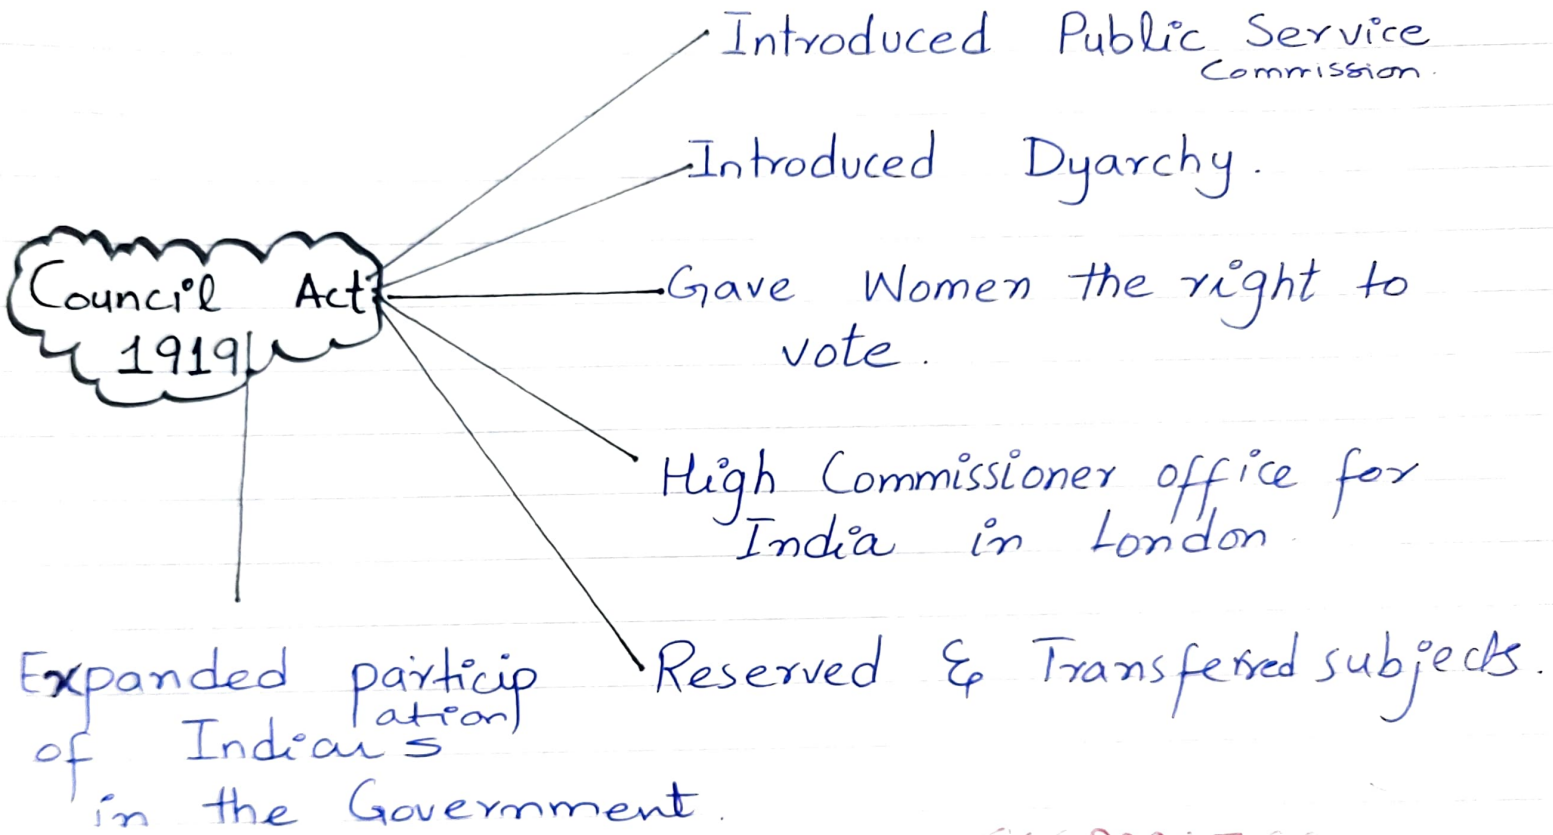 Introduced Public Service
Commission.
Introduced Dyarchy.
Council Act
1919
Gave Women the right to
vote.
High Commissioner office for
India in London
Reserved & Transferred subjects.
Expanded particip
ation
of Indians
in the Government.